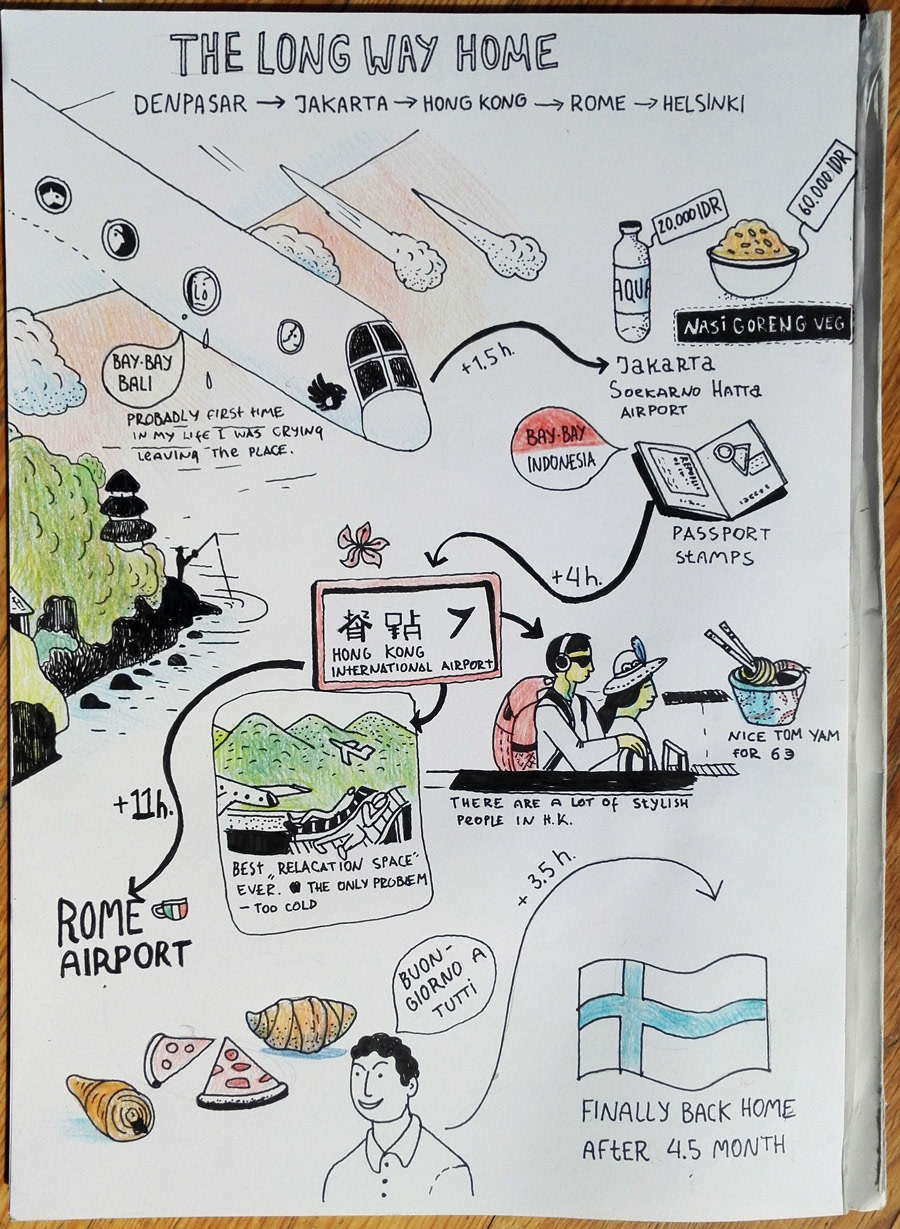 THE LONG WAY HOME
DENPASAR → JAKARTA → HONG KONG → ROME → HELSINKI
20.000 IDR
60.000 IDR
AQUA
NASI GORENG VEG
BAY-BAY
BALI
PROBADLY FIRST TIME
IN MY LIFE I WAS CRYING
LEAVING THE PLACE.
+1,5 h.
JAKARTA
SOEKARNO HATTA
AIRPORT
BAY-BAY
INDONESIA
PASSPORT
STAMPS
+4 h.
HONG KONG
INTERNATIONAL AIRPORT
NICE TOM YAM
FOR 6 €
THERE ARE A LOT OF STYLISH
PEOPLE IN H.K.
+11h.
BEST „RELACATION SPACE"
EVER. THE ONLY PROBLEM
– TOO COLD
ROME
AIRPORT
+ 3.5 h.
BUON-
GIORNO A
TUTTI
FINALLY BACK HOME
AFTER 4.5 MONTH